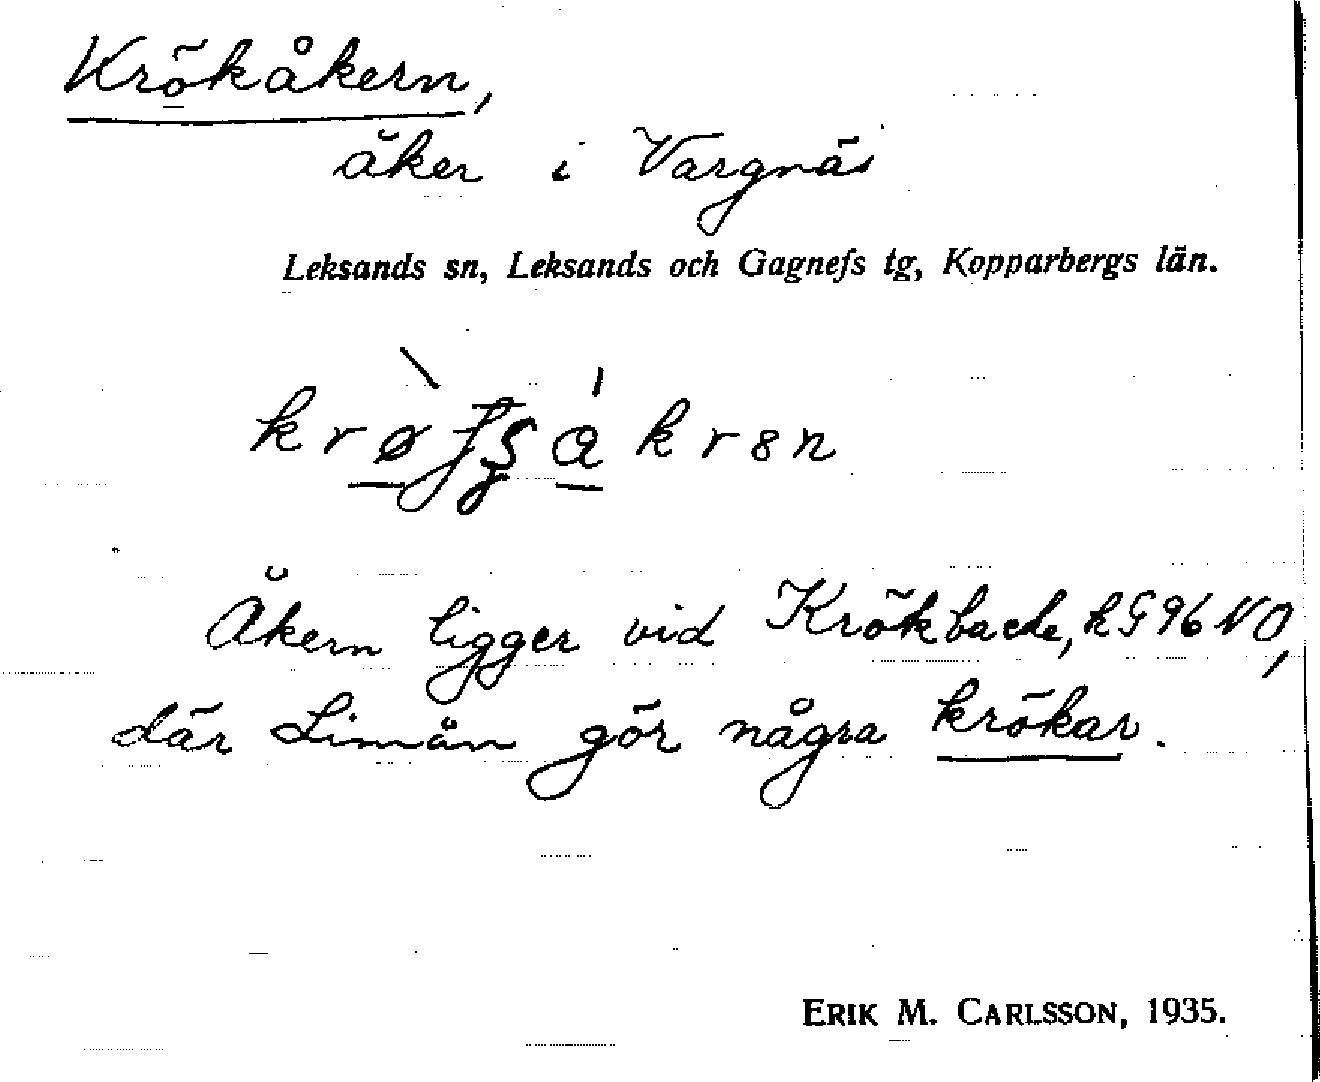 Krökåkern,
åker i Vargnäs
Leksands sn, Leksands och Gagnefs tg, Kopparbergs län.
Åkern ligger vid Krökbacke, k G 96 NO,
där Limån gör några krökar.
ERIK M. CARLSSON, 1935.